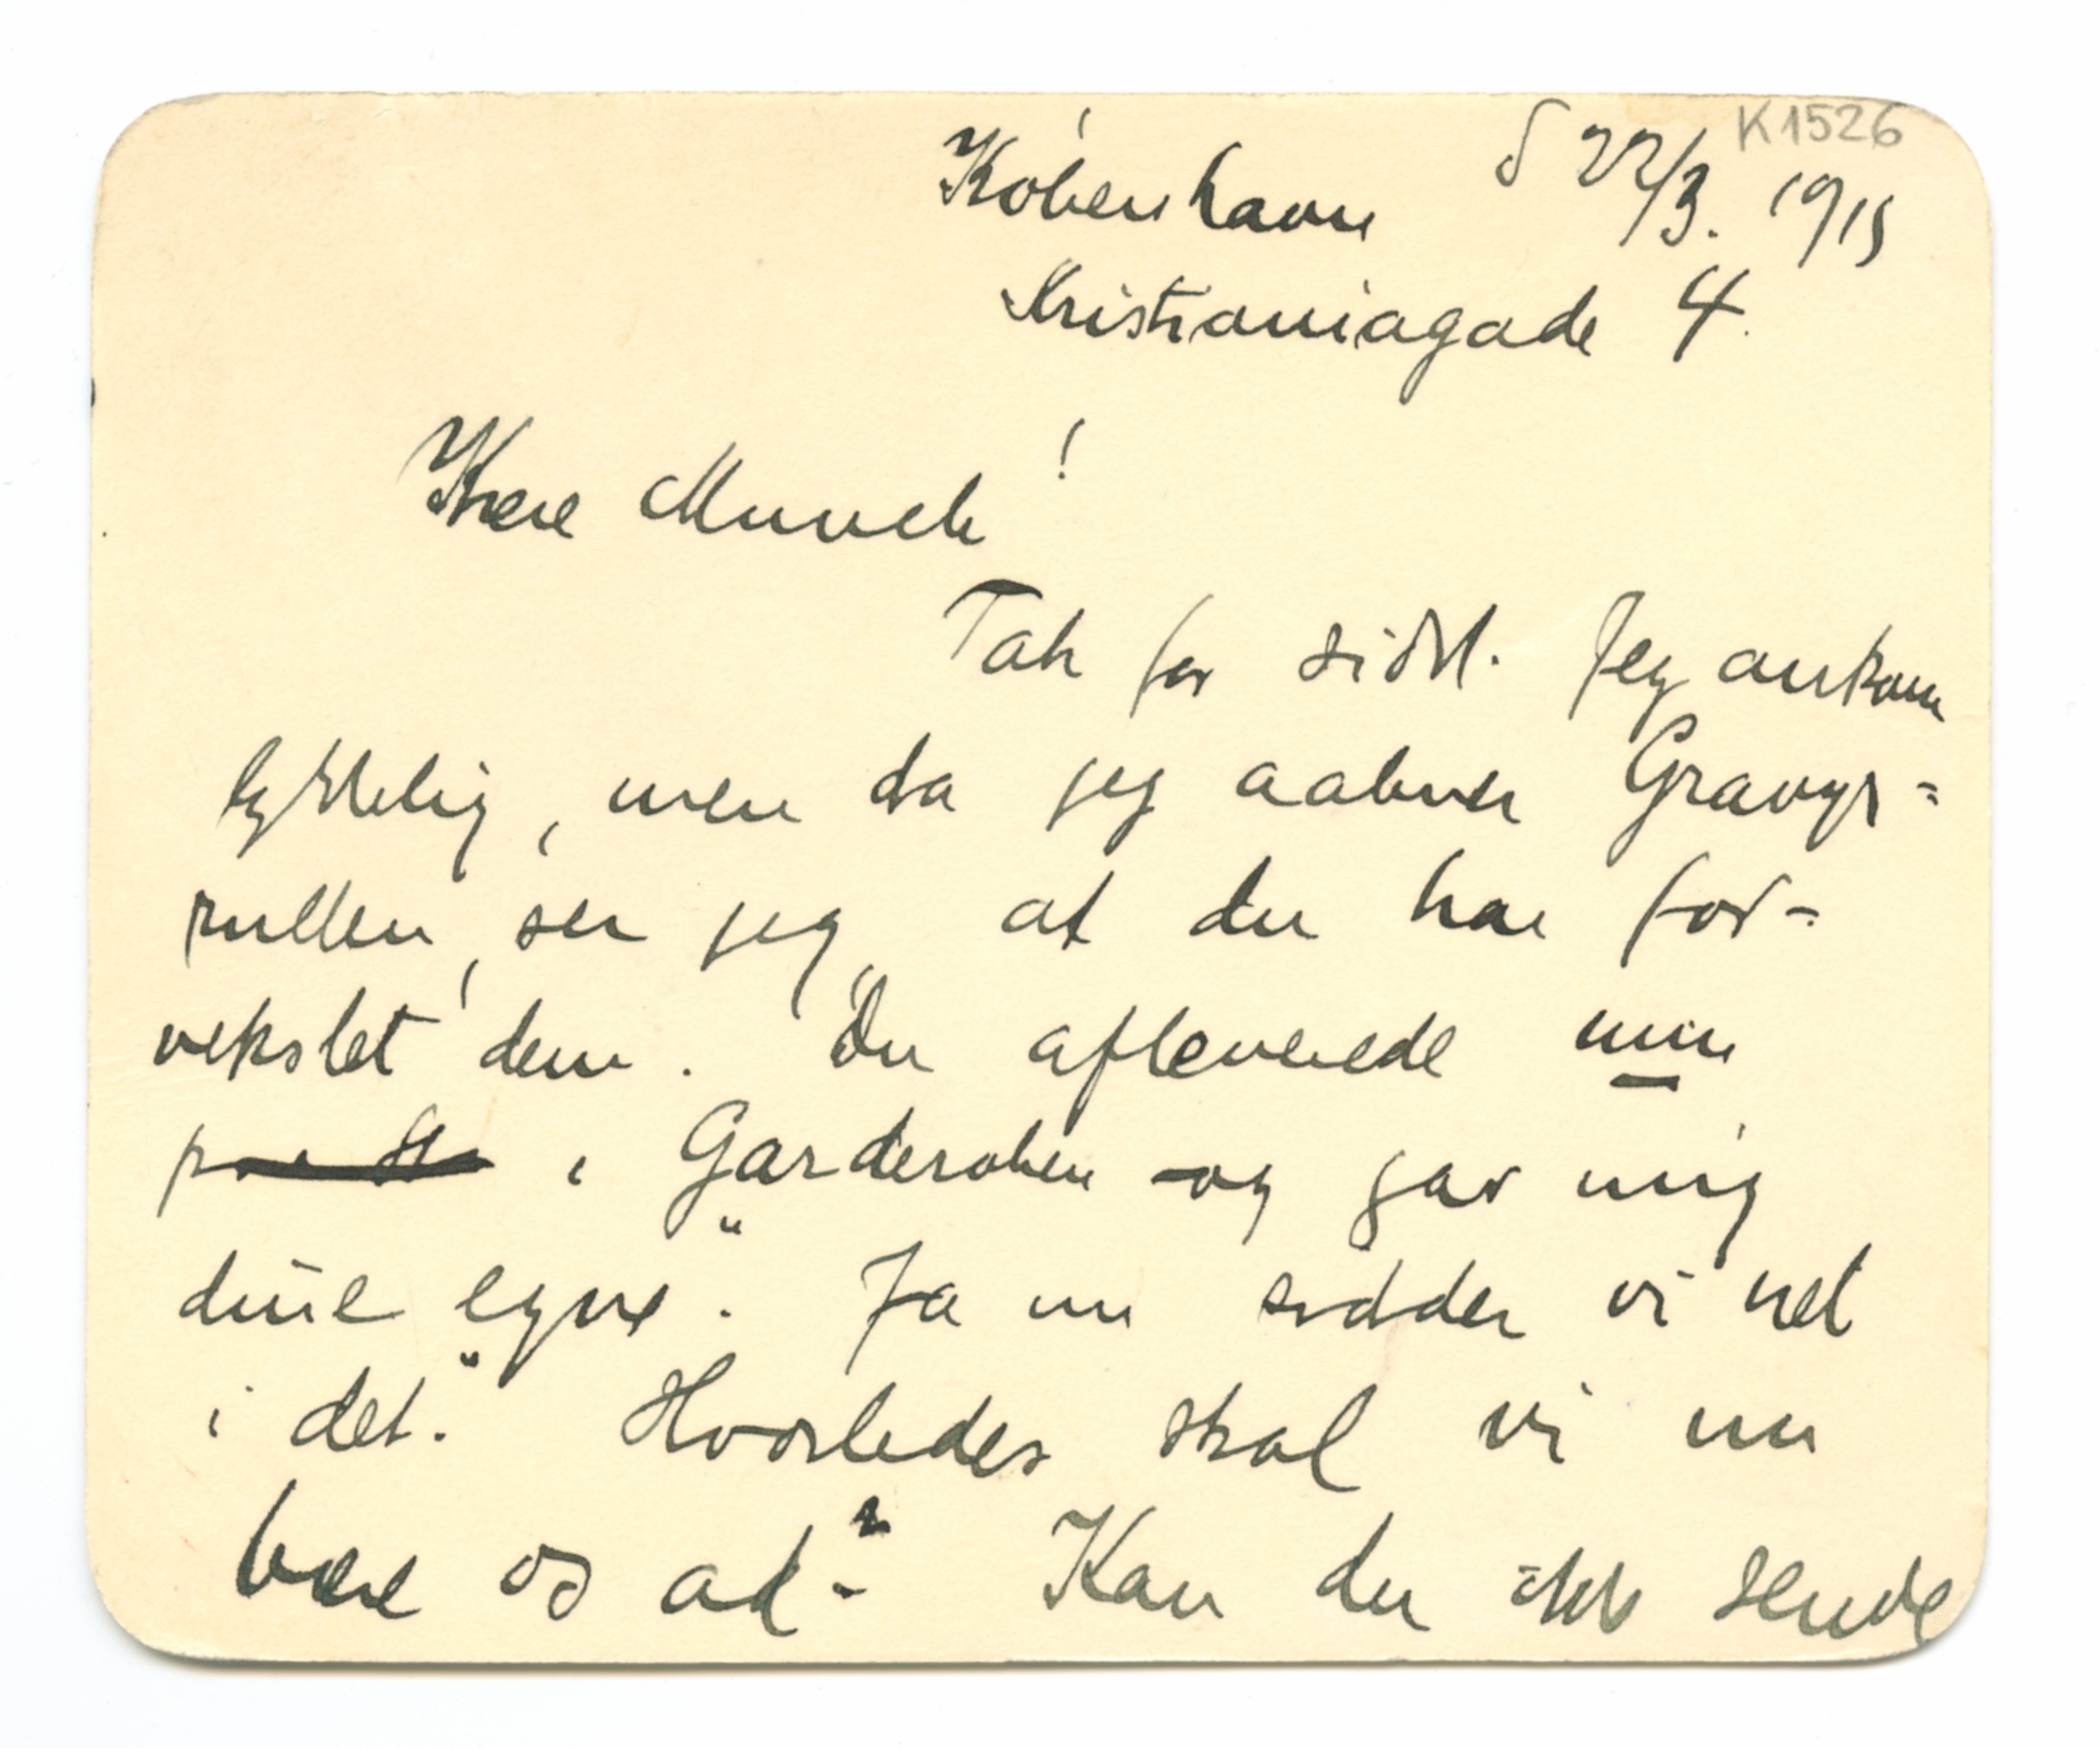 K1526
København d 22/3. 1915
Kristianiagade 4.
Kære Munch!
Tak for sidst. Jeg ankom
lykkelig, men da jeg aabner Gravyr=
rullen, ser jeg at du har for=
vekslet dem. Du afleverede min
i Garderoben og gav mig
"dine egne". Ja nu sidder vi net
i det." Hvorledes skal vi nu
bære os ad? Kan du ikke sende